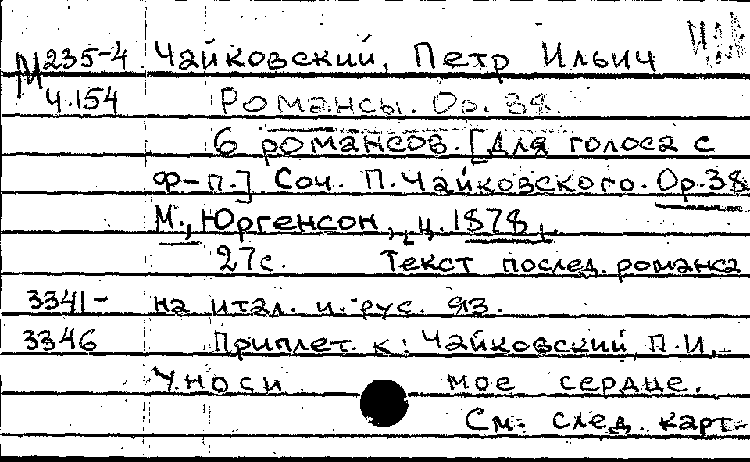 М 235-4 Чайковский, Петр Ильич
Ч.154 Романсы. Ор. 38.
6 романсов. [Для голоса с
ф-п.] Соч. П. Чайковского. Ор. 38
М., Юргенсон, ц. 1878.
27с. Текст послед. романса
3341- на итал. и рус. яз.
3346 Приплет. к: Чайковский, П.И.
Уноси мое сердце.
См. след. карт.